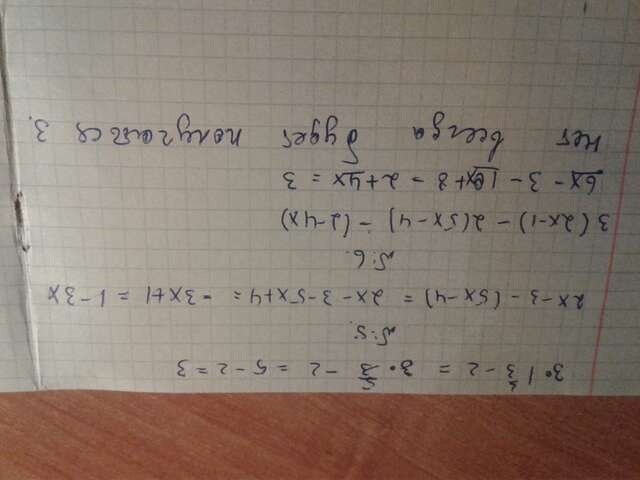 3 • 1 2/3 - 2 = 3 • 5/3 - 2 = 5 - 2 = 3
№5.
2x - 3 - (5x - 4) = 2x - 3 - 5x + 4 = -3x + 1 = 1 - 3x
№6.
3(2x-1) - 2(5x-4) - (2-4x)
6x - 3 - 10x + 8 - 2 + 4x = 3
Нет всегда будет получаться 3.